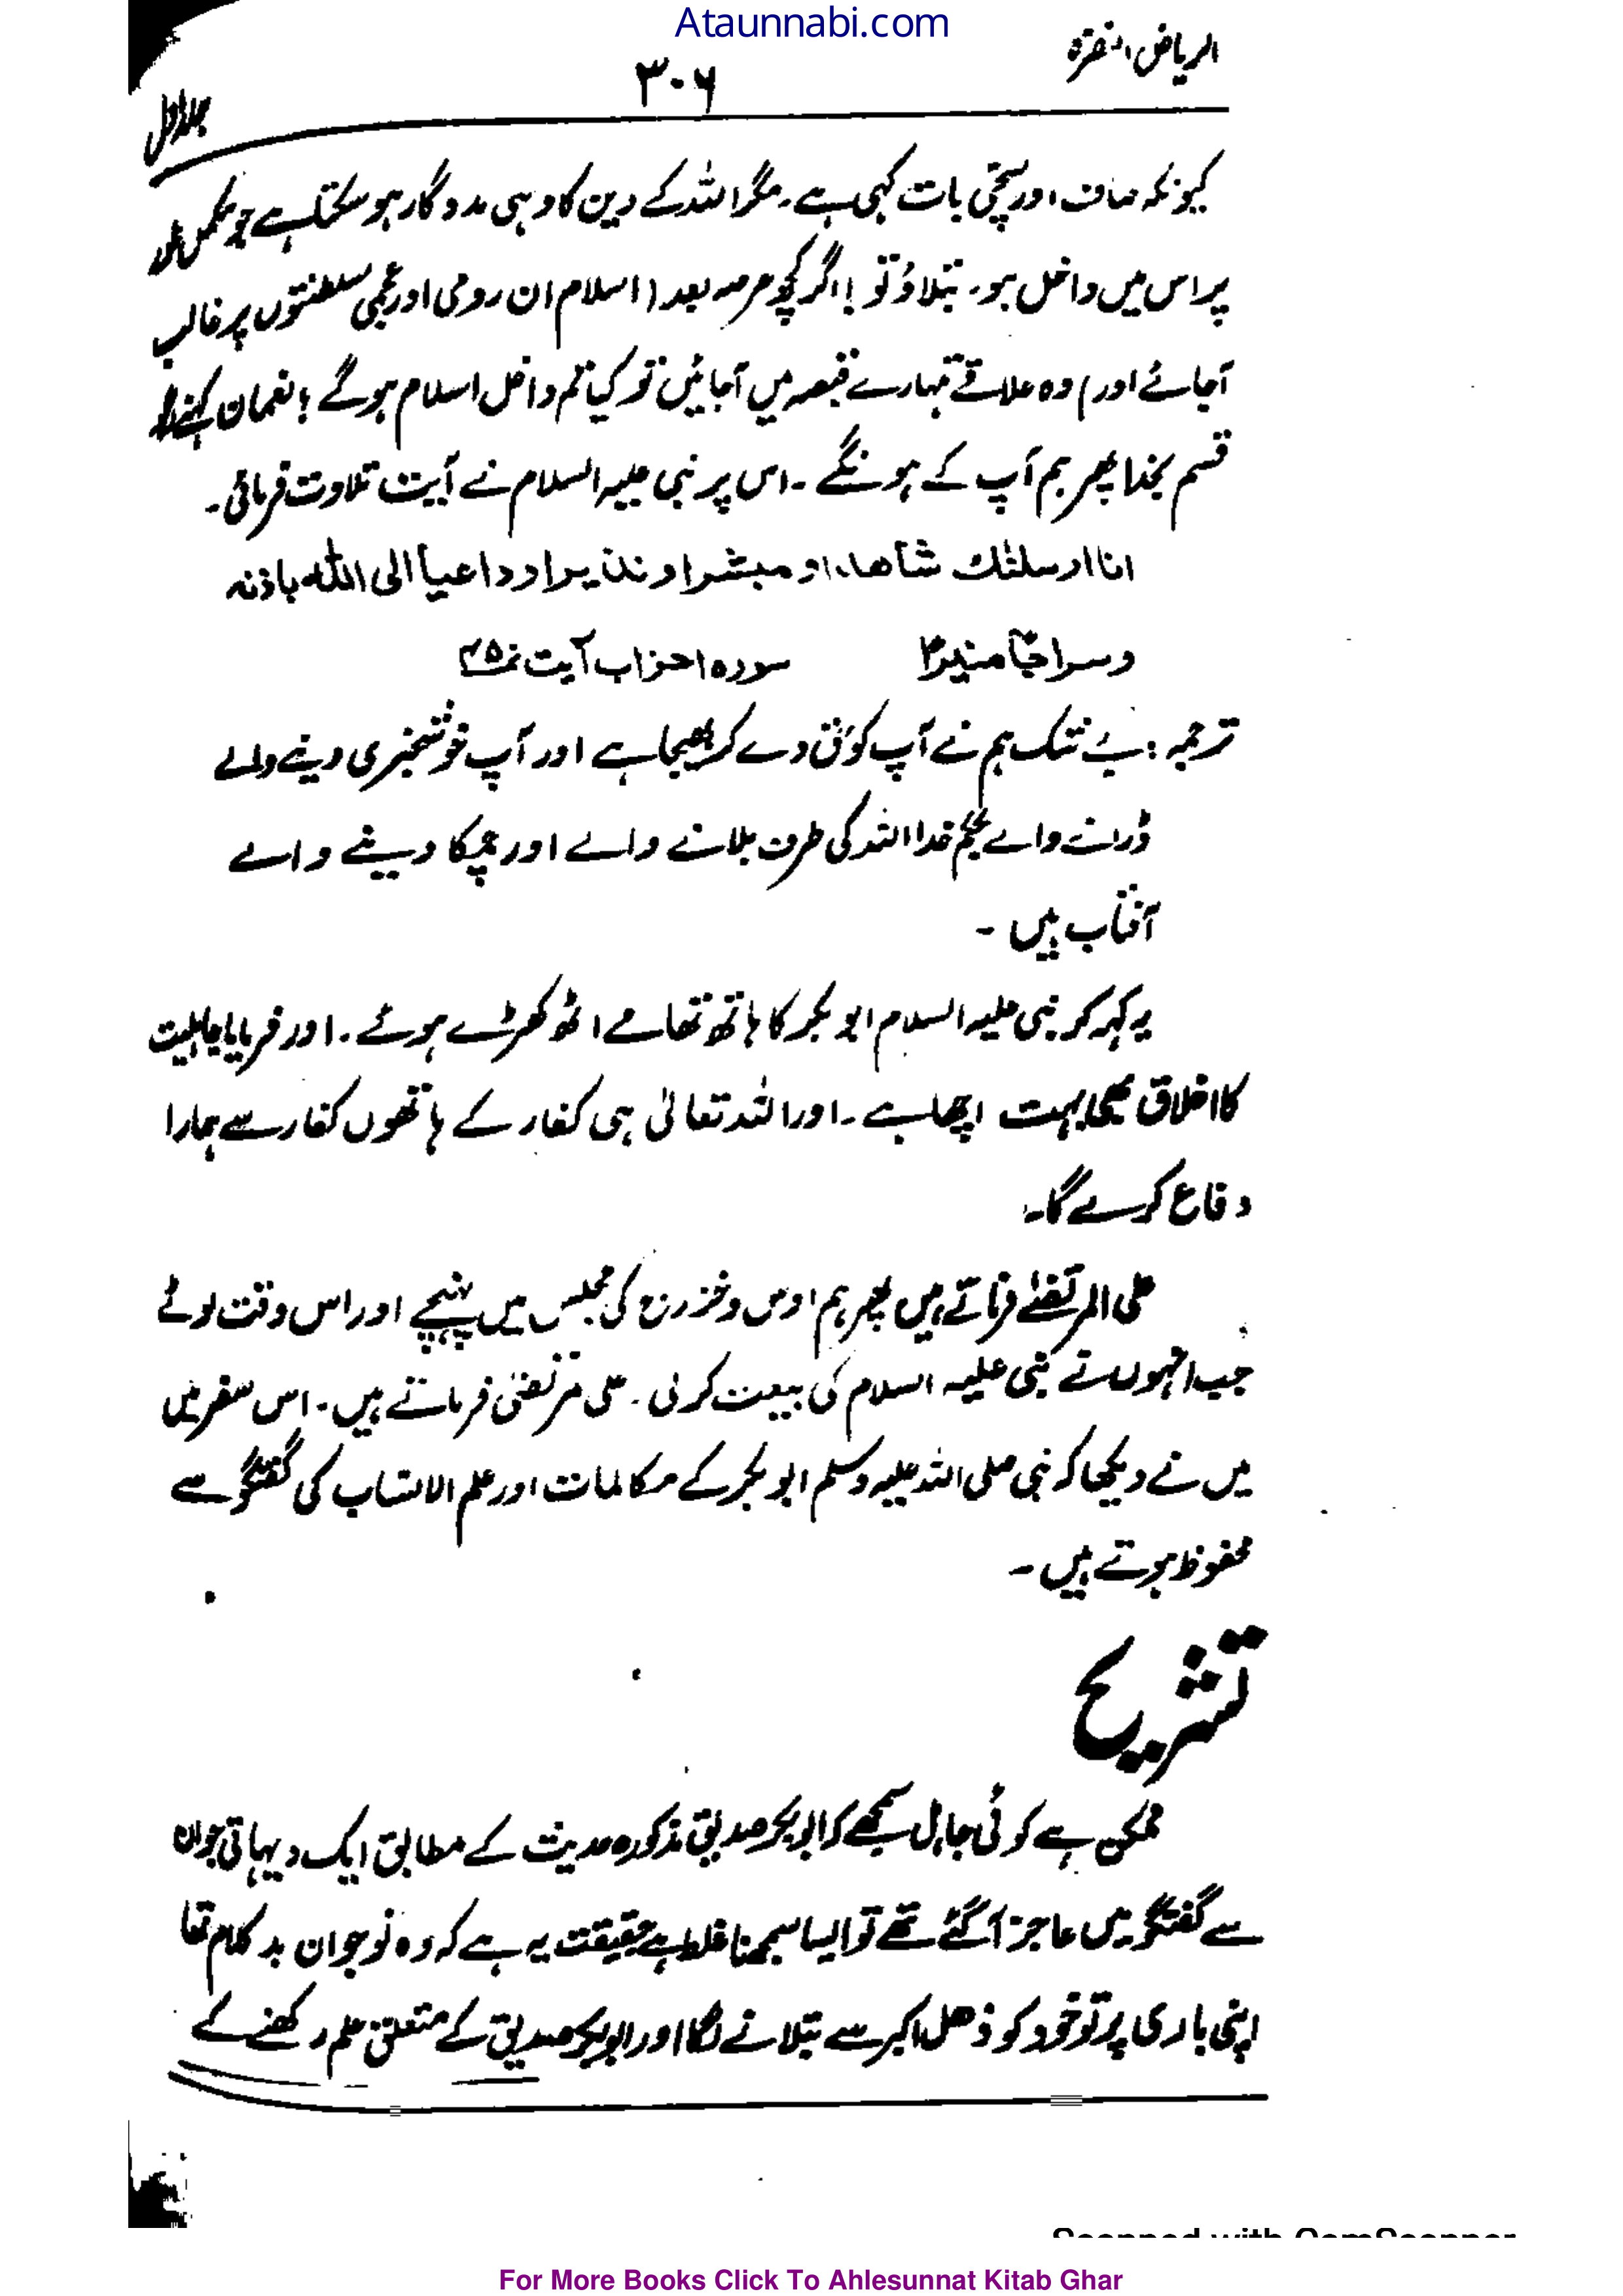 Ataunnabi.com
الریاض النضرۃ
۳۰۶
جلد اول
کیونکہ صاف اور سچی بات کہی ہے۔ مگر اللہ کے دین کا وہی مددگار ہو سکتا ہے جو مکمل طور
پر اس میں داخل ہو۔ بتلاؤ تو! اگر کچھ عرصہ بعد (اسلام ان رومی اور عجمی سلطنتوں پر غالب
آجائے اور) وہ علاقے تمہارے قبضہ میں آجائیں تو کیا تم داخل اسلام ہوگے؟ نعمان کہنے لگا
قسم بخدا پھر ہم آپ کے ہونگے۔ اس پر نبی علیہ السلام نے آیت تلاوت فرمائی۔
انا ارسلنٰک شاھدا و مبشرا و نذیرا و داعیاً الی اللہ باذنہ
وسراجاً منیرا سورہ احزاب آیت نمبر ۴۵
ترجمہ: بے شک ہم نے آپ کو حق دے کر بھیجا ہے اور آپ خوشخبری دینے والے
ڈرانے والے بحکم خدا اللہ کی طرف بلانے والے اور چمکا دینے والے
آفتاب ہیں۔
یہ کہہ کر نبی علیہ السلام ابو بکر کا ہاتھ تھامے اٹھ کھڑے ہوئے۔ اور فرمایا جاہلیت
کا اخلاق بھی بہت اچھا ہے۔ اور اللہ تعالیٰ ہی کفار کے ہاتھوں کفار سے ہمارا
دفاع کرے گا۔
علی المرتضےٰ فرماتے ہیں پھر ہم اوس و خزرج کی مجلس میں پہنچے اور اس وقت لوٹے
جب انہوں نے نبی علیہ السلام کی بیعت کر لی۔ علی مرتضیٰ فرماتے ہیں۔ اس سفر میں
میں نے دیکھا کہ نبی صلی اللہ علیہ وسلم ابو بکر کے مکالمات اور علم الانساب کی گفتگو سے
محفوظ ہوتے ہیں۔
تشریح
ممکن ہے کوئی جاہل سمجھے کہ ابوبکر صدیق مذکورہ حدیث کے مطابق ایک دیہاتی جوان
سے گفتگو میں عاجز آ گئے تھے تو ایسا سمجھنا غلط ہے حقیقت یہ ہے کہ وہ نوجوان بد کلام تھا
اپنی باری پر تو خود کو ذھل اکبر سے بتلانے لگا اور ابوبکر صدیق کے متعلق علم رکھنے کے
Scanned with CamScanner
For More Books Click To Ahlesunnat Kitab Ghar